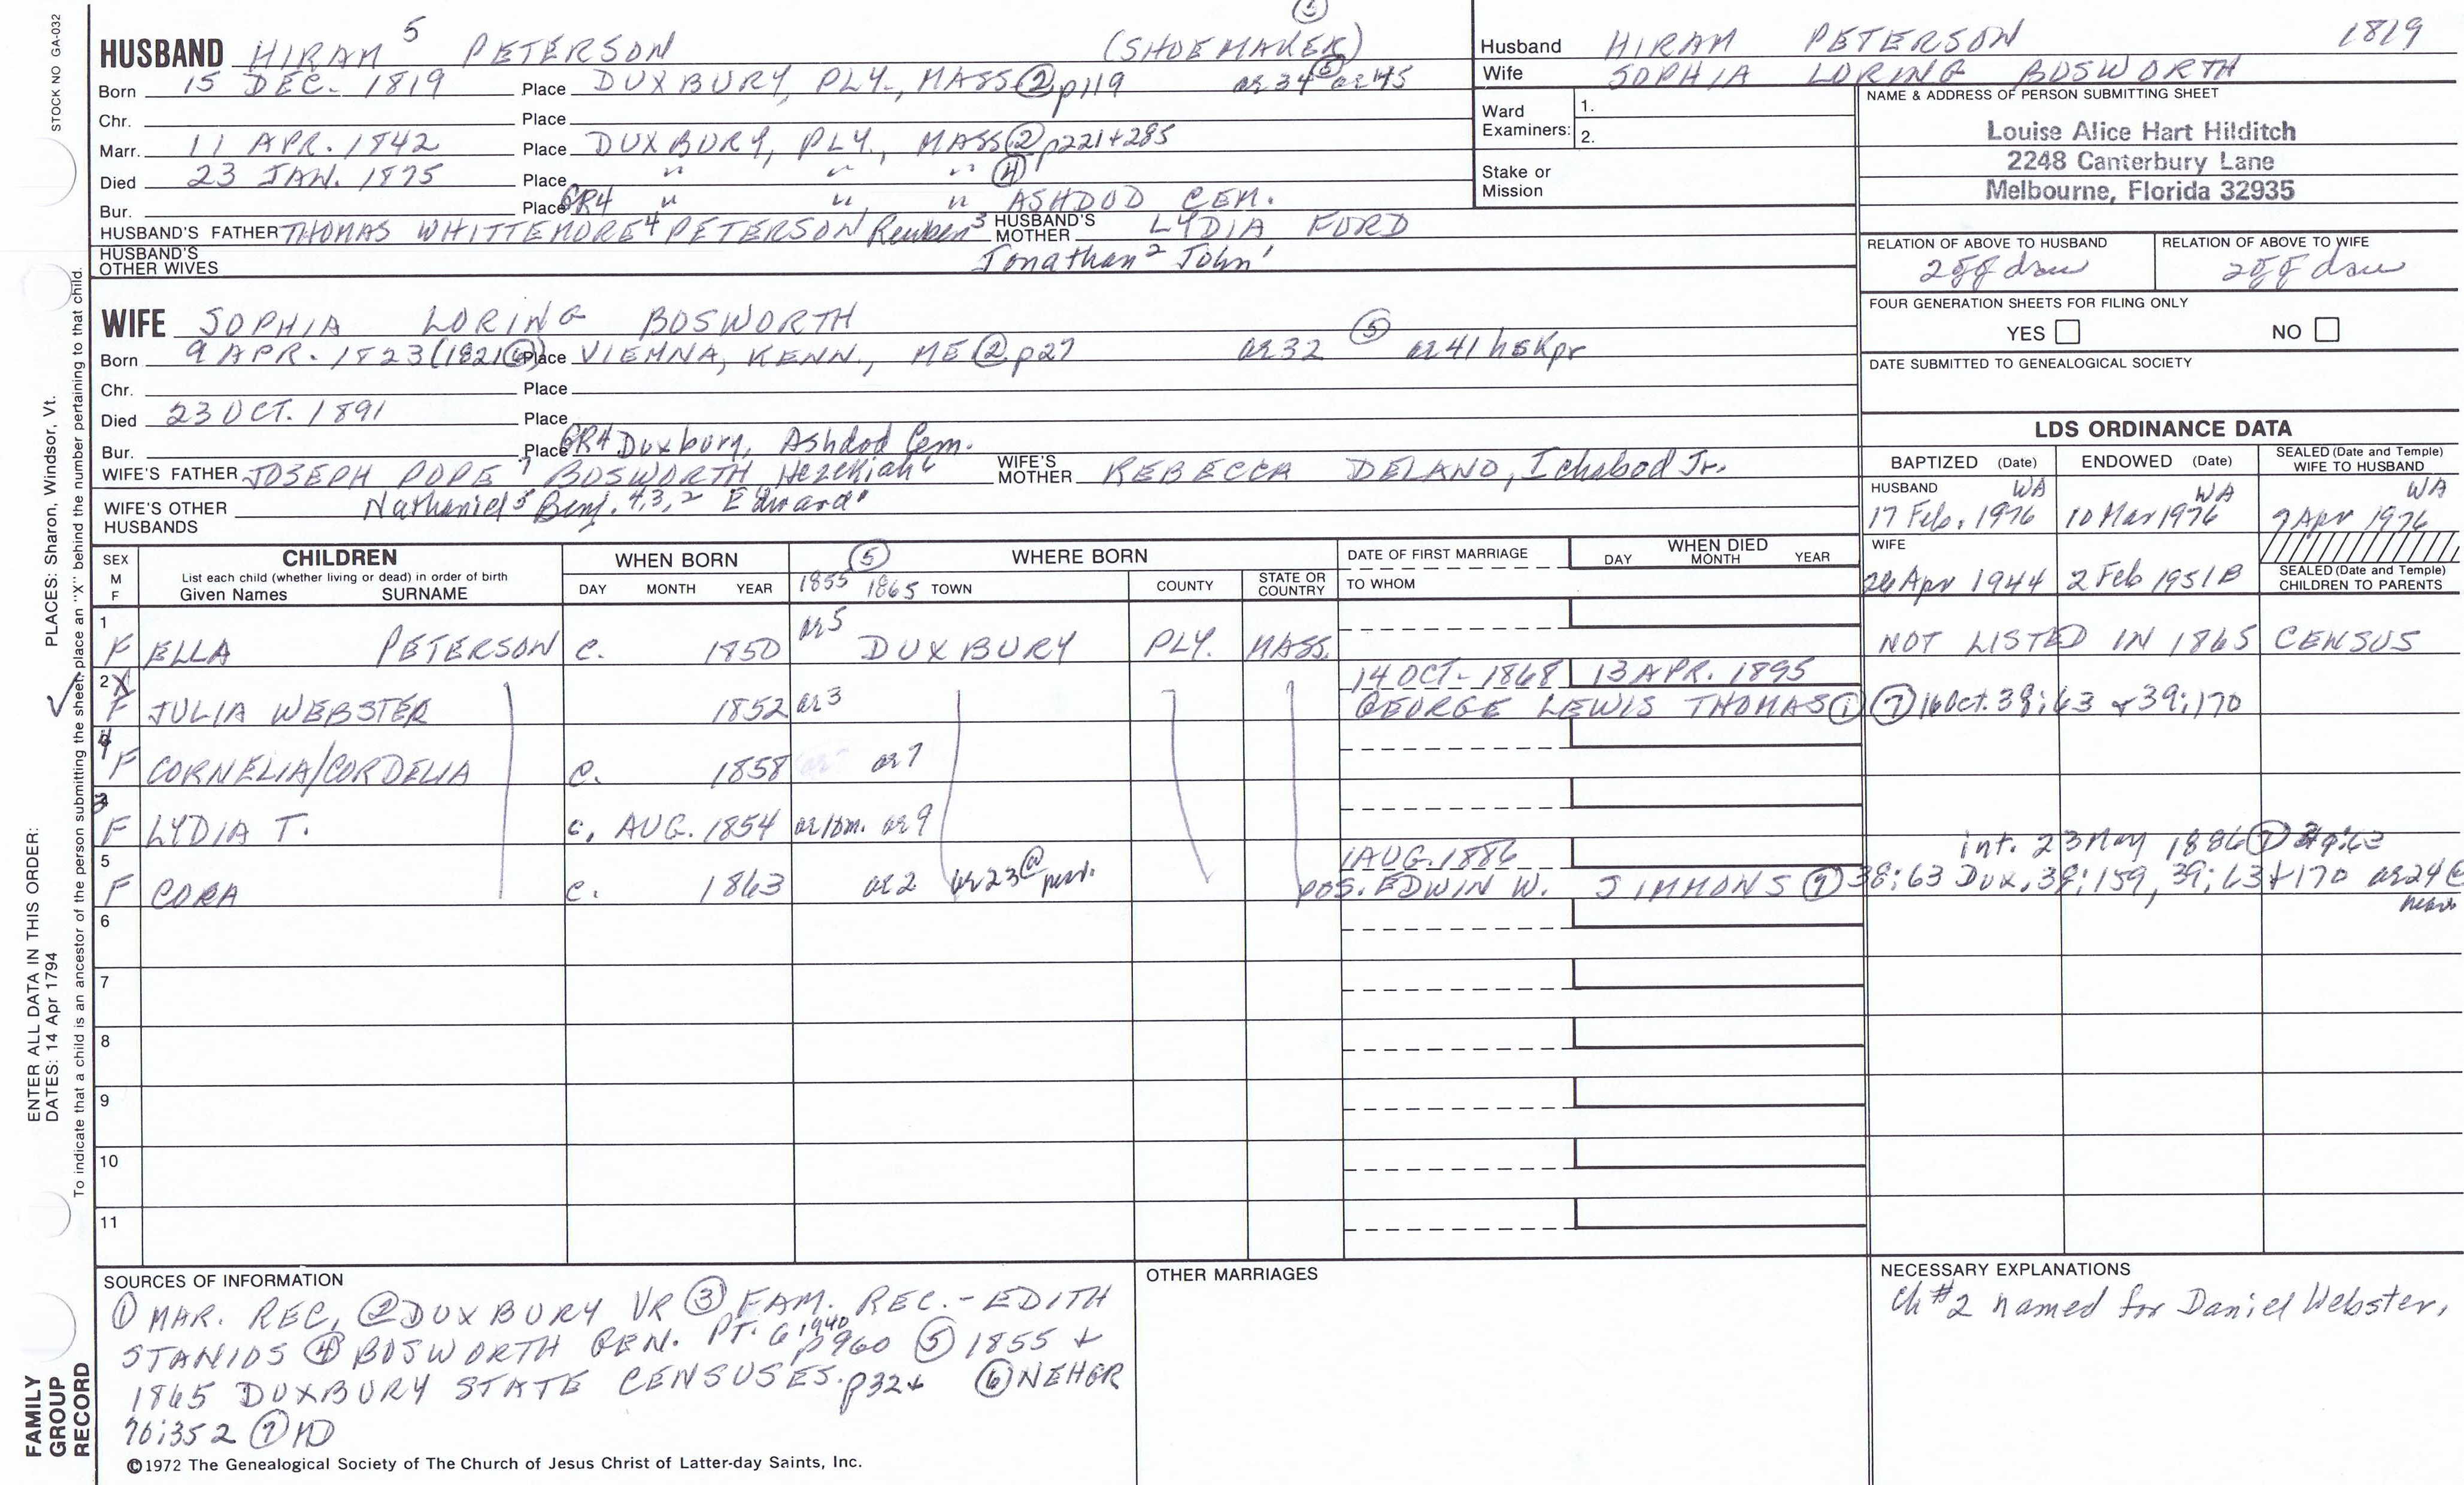 STOCK NO GA-032
HUSBAND HIRAM 5 PETERSON (SHOEMAKER) ⑤
Born 15 DEC. 1819 Place DUXBURY, PLY., MASS ② p119 ae 34 ⑤ ae 45
Chr. Place
Marr. 11 APR. 1842 Place DUXBURY, PLY., MASS ② p221+285
Died 23 JAN. 1875 Place " " " ④
Bur. Place GR4 " " " ASHDOD CEM.
HUSBAND'S FATHER THOMAS WHITTEMORE 4 PETERSON Reuben 3 HUSBAND'S MOTHER LYDIA FORD
HUSBAND'S OTHER WIVES Jonathan 2 John 1
Husband HIRAM PETERSON 1819
Wife SOPHIA LORING BOSWORTH
Ward Examiners: 1.
2.
Stake or Mission
NAME & ADDRESS OF PERSON SUBMITTING SHEET
Louise Alice Hart Hilditch
2248 Canterbury Lane
Melbourne, Florida 32935
RELATION OF ABOVE TO HUSBAND RELATION OF ABOVE TO WIFE
2gg dau 2gg dau
FOUR GENERATION SHEETS FOR FILING ONLY
YES NO
DATE SUBMITTED TO GENEALOGICAL SOCIETY
WIFE SOPHIA LORING BOSWORTH
Born 9 APR. 1823 (1821 ⑥) Place VIENNA, KENN., ME ② p27 ae 32 ⑤ ae 41 hskpr
Chr. Place
Died 23 OCT. 1891 Place
Bur. Place GR4 Duxbury, Ashdod Cem.
WIFE'S FATHER JOSEPH POPE 7 BOSWORTH Hezekiah 6 WIFE'S MOTHER REBECCA DELANO, Ichabod Jr.
WIFE'S OTHER HUSBANDS Nathaniel 5 Benj. 4,3,2 Edward 1
LDS ORDINANCE DATA
BAPTIZED (Date) ENDOWED (Date) SEALED (Date and Temple) WIFE TO HUSBAND
HUSBAND WA WA WA
17 Feb, 1976 10 Mar 1976 7 Apr 1976
WIFE
26 Apr 1944 2 Feb 1951 B SEALED (Date and Temple) CHILDREN TO PARENTS
SEX M F CHILDREN WHEN BORN ⑤ WHERE BORN DATE OF FIRST MARRIAGE WHEN DIED
List each child (whether living or dead) in order of birth
Given Names SURNAME DAY MONTH YEAR 1855 1865 TOWN COUNTY STATE OR COUNTRY TO WHOM DAY MONTH YEAR
1 F ELLA PETERSON c. 1850 ae 5 DUXBURY PLY. MASS. NOT LISTED IN 1865 CENSUS
14 OCT- 1868 13 APR. 1895
2 X F JULIA WEBSTER 1852 ae 3 GEORGE LEWIS THOMAS ① ⑦ 16 Oct. 38:63 + 39:170
4 F CORNELIA/CORDELIA c. 1858 ae 7
3 F LYDIA T. c. AUG. 1854 ae 10m. ae 9
1 AUG. 1886 int. 23 May 1886 ⑦
5 F CORA c. 1863 ae 2 ae 23 @ marr. pos. EDWIN W. SIMMONS ⑦ 38:63 Dux, 38:159, 39:63+170 ae 24 @
6
7
8
9
10
11
SOURCES OF INFORMATION
① MAR. REC, ② DUXBURY VR ③ FAM. REC.- EDITH
STANIDS ④ BOSWORTH GEN. PT. 6 1940 p960 ⑤ 1855 +
1865 DUXBURY STATE CENSUSES. p32+ ⑥ NEHGR
76:352 ⑦ MD
OTHER MARRIAGES
NECESSARY EXPLANATIONS
Ch #2 named for Daniel Webster,
©1972 The Genealogical Society of The Church of Jesus Christ of Latter-day Saints, Inc.
FAMILY GROUP RECORD
ENTER ALL DATA IN THIS ORDER:
DATES: 14 Apr 1794 PLACES: Sharon, Windsor, Vt.
To indicate that a child is an ancestor of the person submitting the sheet, place an "X" behind the number pertaining to that child.